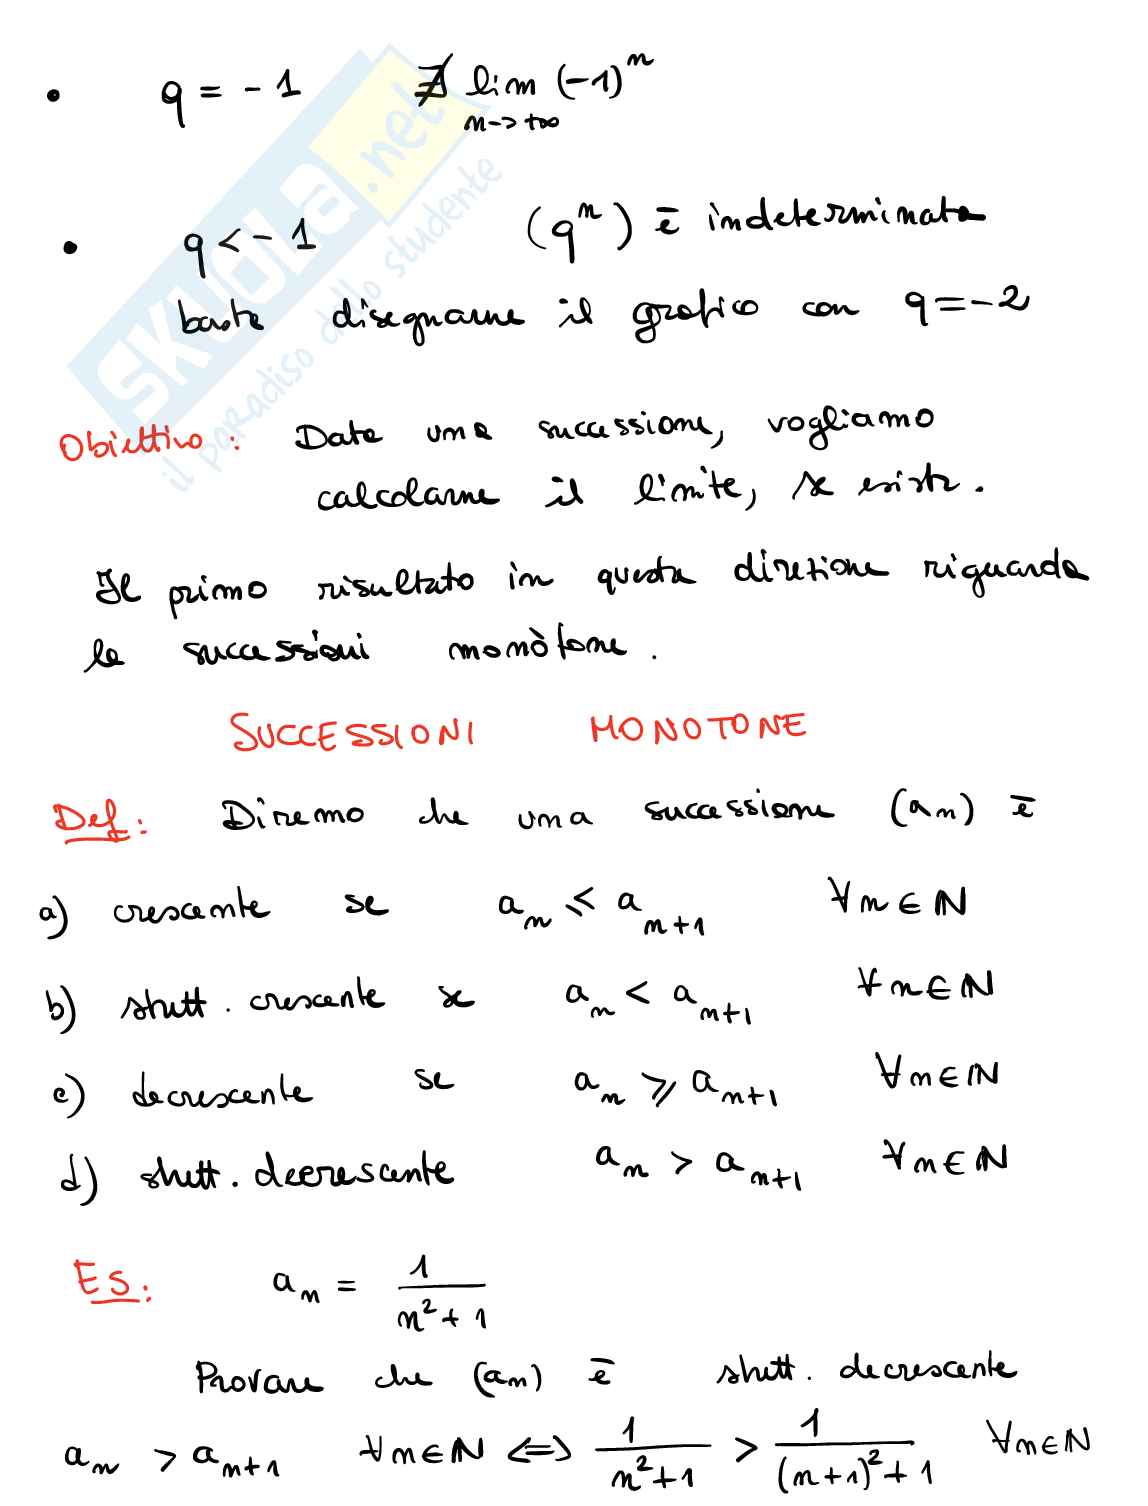 • q = -1 ∄ lim (-1)^n
n→+∞
• q < -1 (q^n) è indeterminata
basta disegnarne il grafico con q=-2
Obiettivo: Data una successione, vogliamo
calcolarne il limite, se esiste.
Il primo risultato in questa direzione riguarda
le successioni monòtone.
SUCCESSIONI MONOTONE
Def: Diremo che una successione (a_n) è
a) crescente se a_n ≤ a_{n+1} ∀n∈ℕ
b) strett. crescente se a_n < a_{n+1} ∀n∈ℕ
c) decrescente se a_n ≥ a_{n+1} ∀n∈ℕ
d) strett. decrescente a_n > a_{n+1} ∀n∈ℕ
Es: a_n = 1/(n²+1)
Provare che (a_n) è strett. decrescente
a_n > a_{n+1} ∀n∈ℕ ⟺ 1/(n²+1) > 1/((n+1)²+1) ∀n∈ℕ
SKUOLA.net
il paradiso dello studente